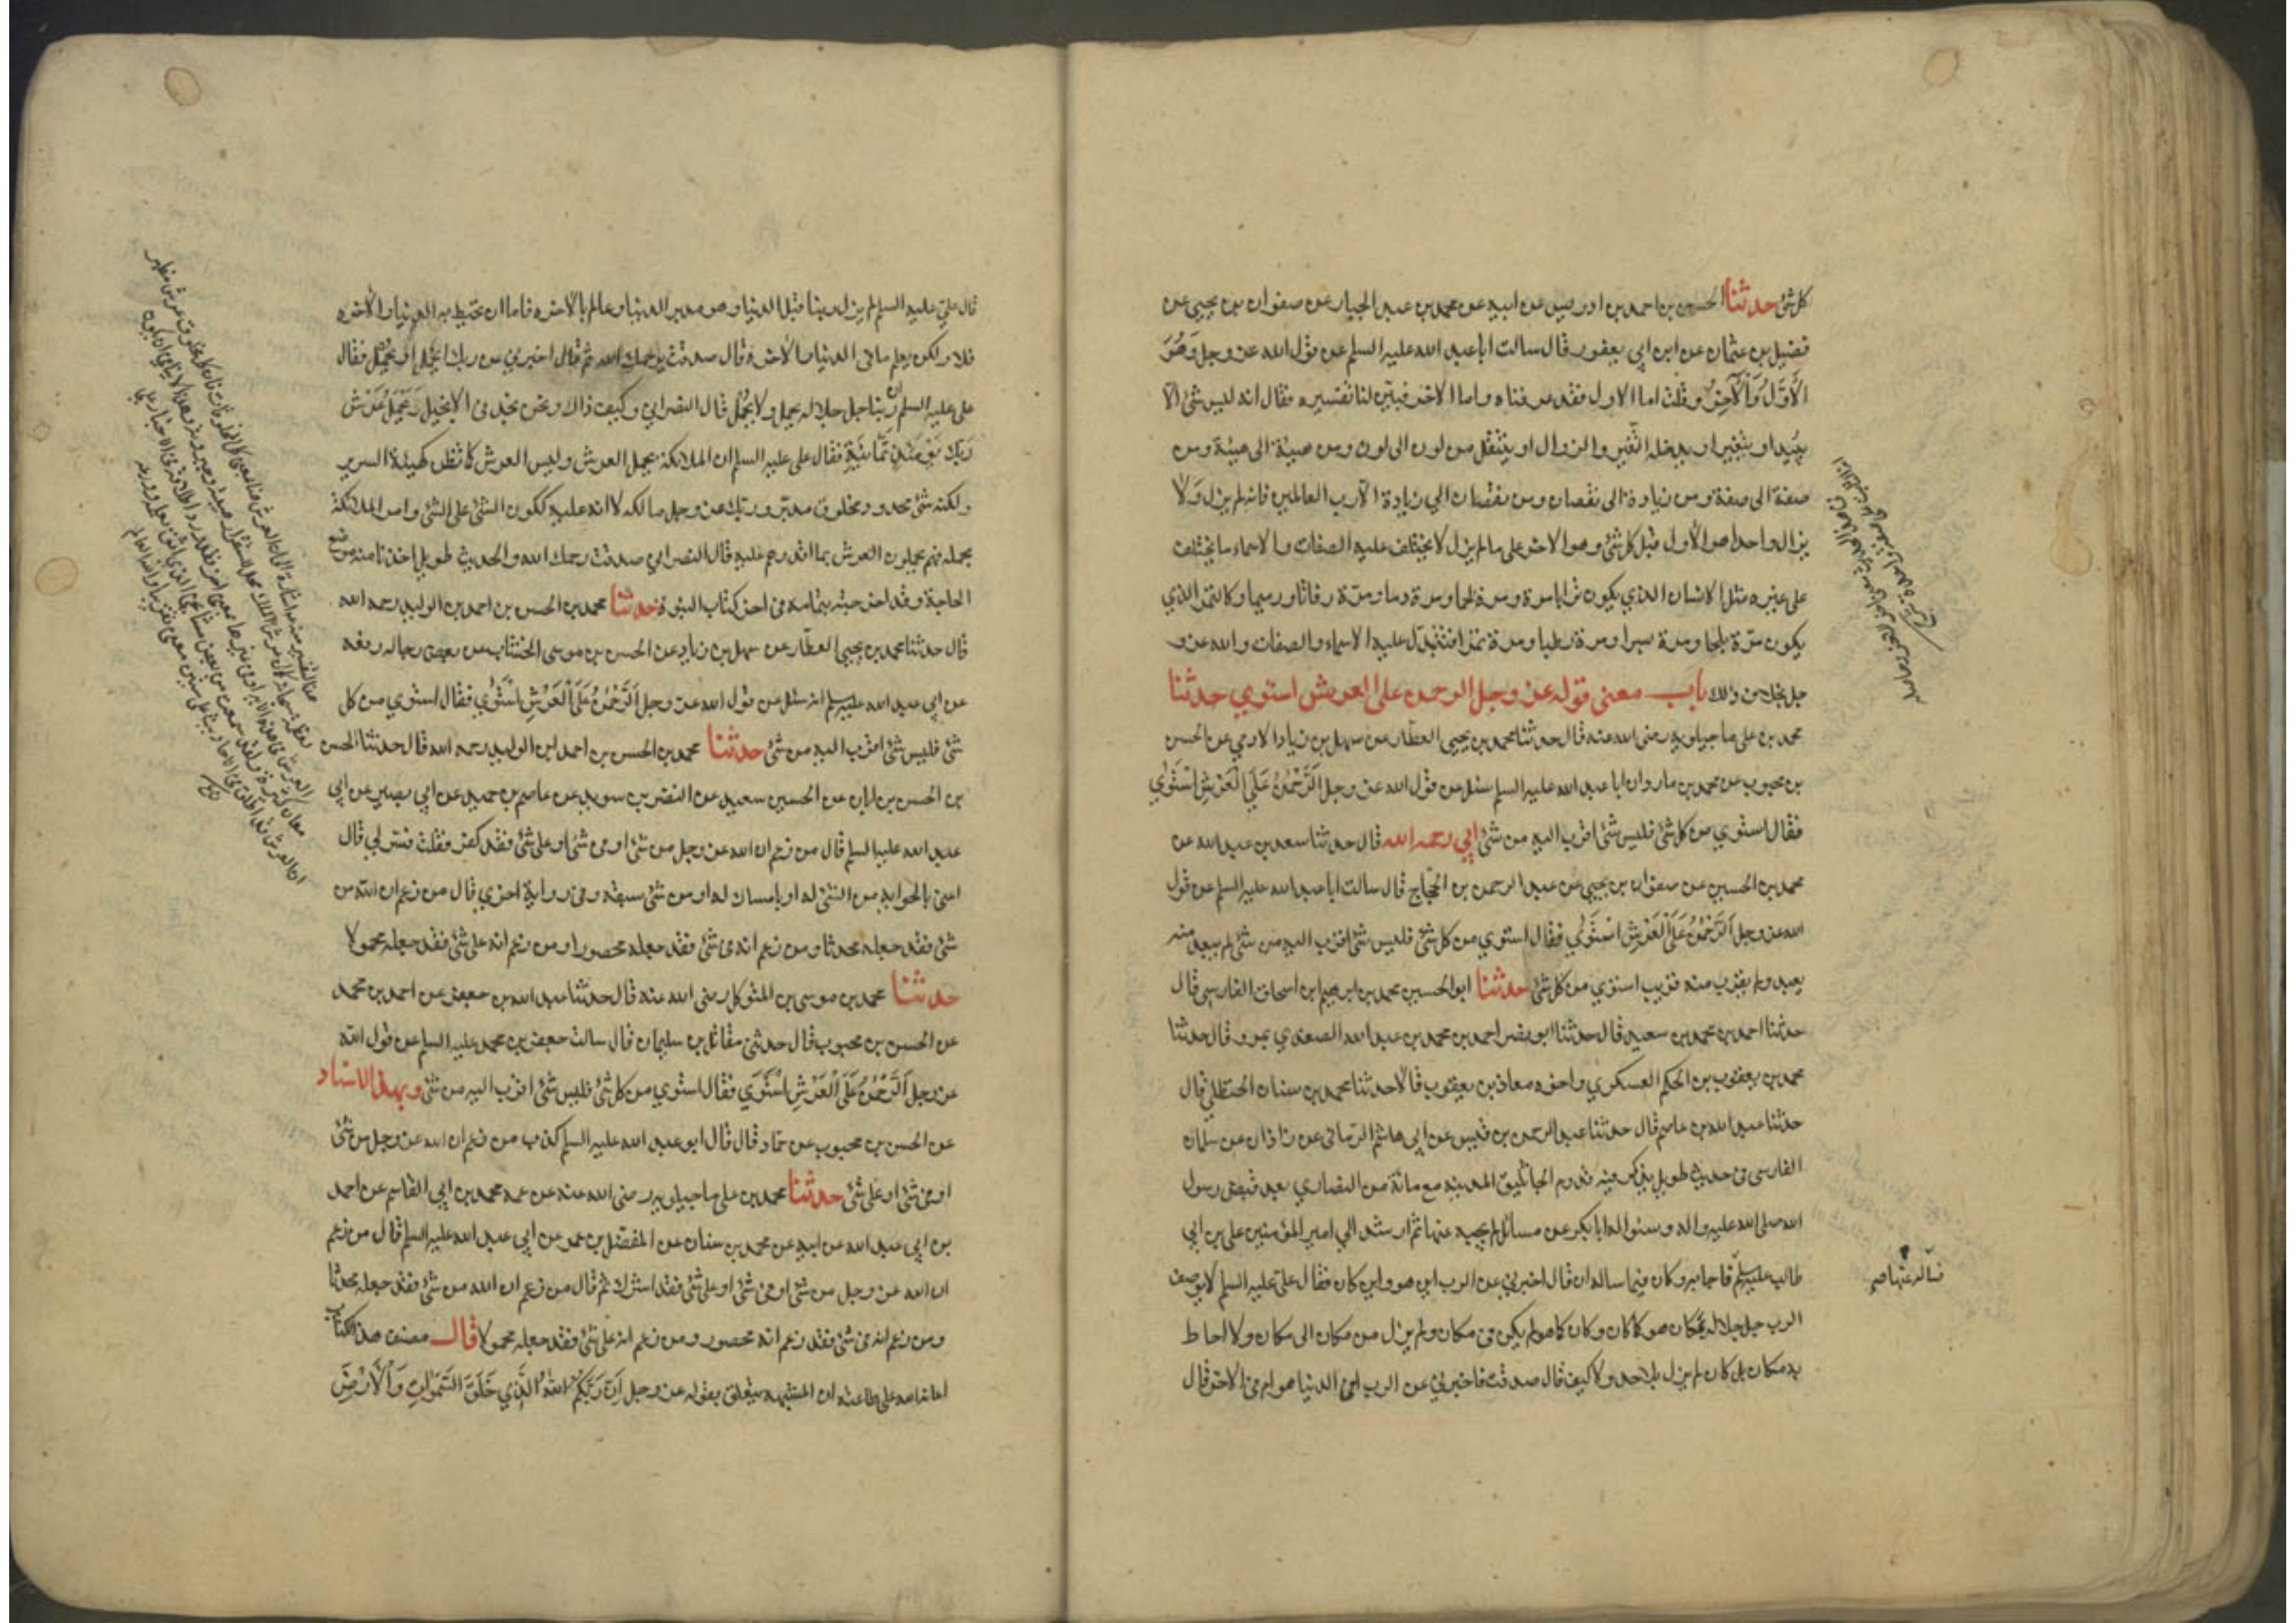 كل شئ حدثنا الحسين بن احمد بن ادريس عن ابيه عن محمد بن عبد الجبار عن صفوان بن يحيى عن
فضيل بن عثمان عن ابن ابي يعفور قال سالت ابا عبد الله عليه السلم عن قول الله عز وجل وَهُوَ
الْأَوَّلُ وَالْآخِرُ وقلت اما الاول فقد عرفناه واما الاخر فبيّن لنا تفسيره فقال انه ليس شئ الّا
يبيد او يتغير او يدخله التغير والزوال او ينتقل من لون الى لون ومن هيئة الى هيئة ومن
صفة الى صفة ومن زيادة الى نقصان ومن نقصان الى زيادة الّا رب العالمين فانه لم يزل وَلَا
يزال واحدا هو الاول قبل كل شئ وهو الاخر على ما لم يزل لا يختلف عليه الصفات والاسماء ما يختلف
على غيره مثل الانسان الذي يكون ترابا مرة ومرة لحما ومرة دما ومرّة رفاتا ورميما وكالتمر الذي
يكون مرّة بلحا ومرة بسرا ومرة رطبا ومرة تمرا فتتبدّل عليه الاسماء والصفات والله عز و
جل بخلاف ذلك باب معنى قوله عز وجل الرحمن على العرش استوي حدثنا
محمد بن على ماجيلويه رضى الله عنه قال حدثنا محمد بن يحيى العطار عن سهل بن زياد الادمي عن الحسن
بن محبوب عن محمد بن مارد ان ابا عبد الله عليه السلم سئل عن قول الله عز وجل اَلرَّحْمٰنُ عَلَى الْعَرْشِ اسْتَوٰي
فقال استوي من كل شئ فليس شئ اقرب اليه من شئ ابي رحمه الله قال حدثنا سعد بن عبد الله عن
محمد بن الحسين عن صفوان بن يحيى عن عبد الرحمن بن الحجّاج قال سالت ابا عبد الله عليه السلم عن قول
الله عز وجل اَلرَّحْمٰنُ عَلَى الْعَرْشِ اسْتَوٰي فقال استوي من كل شئ فليس شئ اقرب اليه من شئ لم يبعد منه
بعيد ولم يقرب منه قريب استوي من كل شئ حدثنا ابو الحسين محمد بن ابرهيم ابن اسحاق الفارسي قال
حدثنا احمد بن محمد بن سعيد قال حدثنا ابو نصر احمد بن محمد بن عبد الله الصغدي بمرو قال حدثنا
محمد بن يعقوب بن الحكم العسكري واخوه معاذ بن يعقوب قالا حدثنا محمد بن سنان الحنظلي قال
حدثنا عبد الله بن عاصم قال حدثنا عبد الرحمن بن قيس عن ابي هاشم الرمانى عن زاذان عن سلمان
الفارسى في حديث طويل يذكر فيه قدوم الجاثليق المدينة مع مائة من النصاري بعد قبض رسول
الله صلى الله عليه واله وسئواله ابا بكر عن مسائل لم يجبه عنها ثم ارشد الي امير المؤمنين على بن ابي
طالب عليه السلم فاجابه وكان فيما ساله ان قال اخبرني عن الرب اين هو واين كان فقال على عليه السلم لا يوصف
الرب جل جلاله بمكان هو كما كان وكان كما هو لم يكن في مكان ولم يزل من مكان الى مكان ولا احاط
به مكان بل كان لم يزل بلا حد ولا كيف قال صدقت فاخبرني عن الرب افي الدنيا هو ام في الاخرة قال
فسأله عنها صح
قال على عليه السلم لم يزل ربنا قبل الدنيا وهو مدبر الدنيا وعالم بالاخره فاما ان تحيط به الدنيا والاخره
فلا ولكن يعلم ما في الدنيا والاخرة قال صدقت يرحمك الله ثم قال اخبرني عن ربك ايَحمل او يُحمل فقال
على عليه السلم ان ربنا جل جلاله يحمل ولا يُحمل قال النصراني وكيف ذاك ونحن نجد في الانجيل وَيَحْمِلُ عَرْشَ
رَبِّكَ يَوْمَئِذٍ ثَمَانِيَةٌ فقال على عليه السلم ان الملائكة تحمل العرش وليس العرش كما تظن كهيئة السرير
ولكنه شئ محدود مخلوق مدبّر وربك عز وجل مالكه لا انه عليه ككون الشئ على الشئ وامر الملائكة
بحمله فهم يحملون العرش بما اقدرهم عليه قال النصراني صدقت رحمك الله والحديث طويل اخذنا منه موضع
الحاجة وقد اخرجته بتمامه في اخر كتاب النبوة حدثنا محمد بن الحسن بن احمد بن الوليد رحمه الله
قال حدثنا محمد بن يحيى العطّار عن سهل بن زياد عن الحسن بن موسى الخشاب عن بعض رجاله رفعه
عن ابي عبد الله عليه السلم انه سئل عن قول الله عز وجل اَلرَّحْمٰنُ عَلَى الْعَرْشِ اسْتَوٰي فقال استوي من كل
شئ فليس شئ اقرب اليه من شئ حدثنا محمد بن الحسن بن احمد ابن الوليد رحمه الله قال حدثنا الحسن
بن الحسن بن ابان عن الحسين سعيد عن النضر بن سويد عن عاصم بن حميد عن ابي بصير عن ابي
عبد الله عليه السلم قال من زعم ان الله عز وجل من شئ او في شئ او على شئ فقد كفر فقلت فسّر لي قال
اعنى بالحوايه من الشئ له او بامساك له او من شئ سبقه وفي رواية اخري قال من زعم ان الله من
شئ فقد جعله محدثا ومن زعم انه في شئ فقد جعله محصورا ومن زعم انه على شئ فقد جعله محمولا
حدثنا محمد بن موسى بن المتوكل رضى الله عنه قال حدثنا عبد الله بن جعفر عن احمد بن محمد
عن الحسن بن محبوب قال حدثني مقاتل بن سليمان قال سالت جعفر بن محمد عليه السلم عن قول الله
عز وجل اَلرَّحْمٰنُ عَلَى الْعَرْشِ اسْتَوَي فقال استوي من كل شئ فليس شئ اقرب اليه من شئ وبهذا الاسناد
عن الحسن بن محبوب عن حمّاد قال قال ابو عبد الله عليه السلم كذب من زعم ان الله عز وجل من شئ
او في شئ او على شئ حدثنا محمد بن على ماجيلويه رضى الله عنه عن عمه محمد بن ابي القاسم عن احمد
بن ابي عبد الله عن ابيه عن محمد بن سنان عن المفضل بن عمر عن ابي عبد الله عليه السلم قال من زعم
ان الله عز وجل من شئ او في شئ او على شئ فقد اشرك ثم قال من زعم ان الله من شئ فقد جعله محدثا
ومن زعم انه في شئ فقد زعم انه محصور ومن زعم انه على شئ فقد جعله محمولا قال مصنف هذا الكتاب
اعانه الله على طاعته ان المشبهه يتعلق بقوله عز وجل اِنَّ رَبَّكُمُ اللّٰهُ الَّذِي خَلَقَ السَّمٰوَاتِ وَالْأَرْضَ